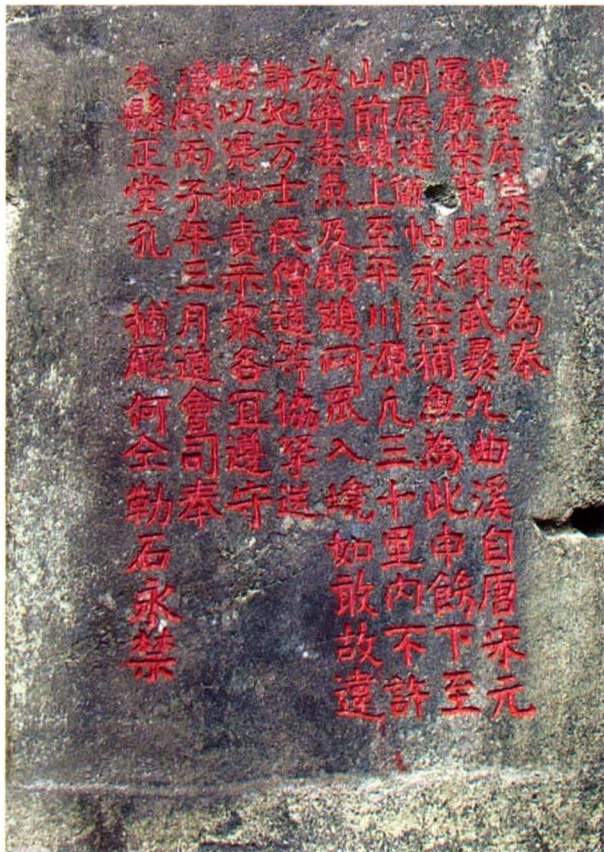 建寧府崇安縣為奉
憲嚴禁事照得武彞九曲溪自唐宋元
明歷帖永禁捕魚為此申飭下至
山前上至平川源三十里內不許
放藥毒魚及鸕鶿网罛入境如敢故違
許地方士民僧道等協拏送
縣以憑枷責示衆各宜遵守
康熙丙子年三月道會司奉
本縣正堂孔 捕廳何仝勒石永禁